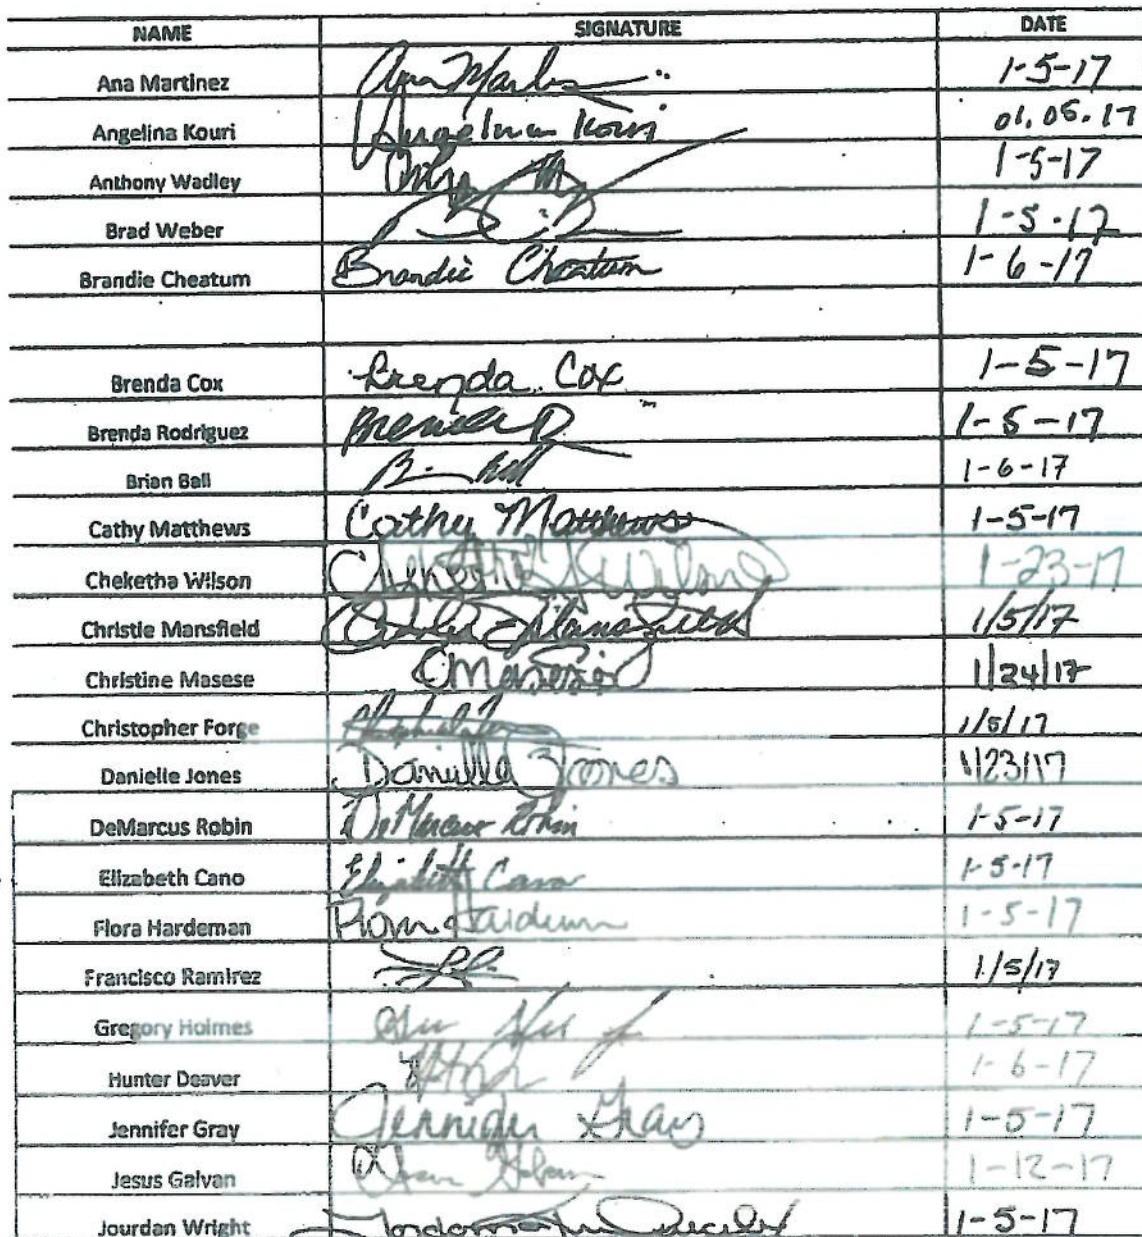 NAME SIGNATURE DATE
Ana Martinez 1-5-17
Angelina Kouri Angelina Kouri 01.05.17
Anthony Wadley 1-5-17
Brad Weber 1-5-17
Brandie Cheatum Brandie Cheatum 1-6-17
Brenda Cox Brenda Cox 1-5-17
Brenda Rodriguez 1-5-17
Brian Ball 1-6-17
Cathy Matthews Cathy Matthews 1-5-17
Cheketha Wilson Wilson 1-23-17
Christie Mansfield Mansfield 1/5/17
Christine Masese CMasese 1/24/17
Christopher Forge 1/5/17
Danielle Jones Danielle Jones 1/23/17
DeMarcus Robin DeMarcus Robin 1-5-17
Elizabeth Cano Elizabeth Cano 1-5-17
Flora Hardeman Flora Hardeman 1-5-17
Francisco Ramirez 1/5/17
Gregory Holmes 1-5-17
Hunter Deaver 1-6-17
Jennifer Gray Jennifer Gray 1-5-17
Jesus Galvan 1-12-17
Jourdan Wright 1-5-17